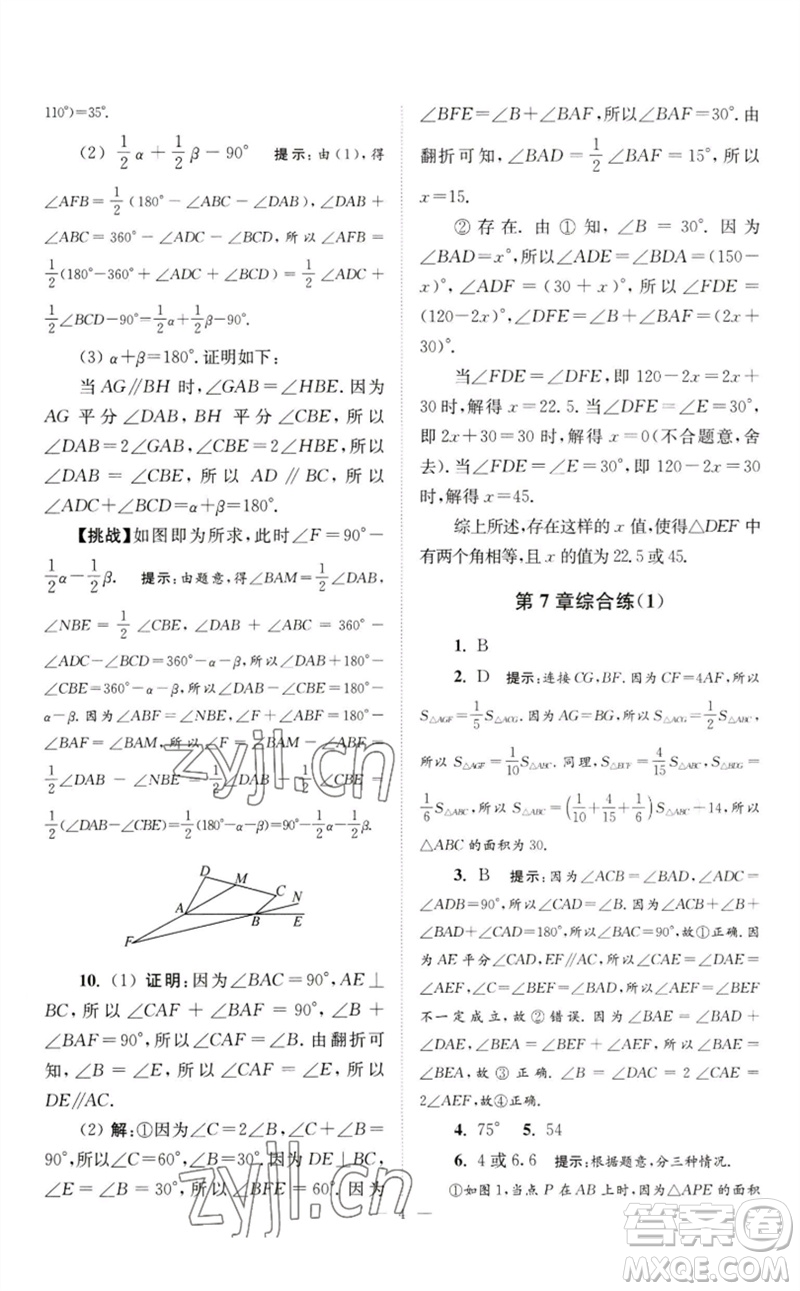 110°)=35°.
(2) 1/2α+1/2β-90° 提示:由(1),得
∠AFB=1/2(180°-∠ABC-∠DAB),∠DAB+
∠ABC=360°-∠ADC-∠BCD,所以∠AFB=
1/2(180°-360°+∠ADC+∠BCD)=1/2∠ADC+
1/2∠BCD-90°=1/2α+1/2β-90°.
(3) α+β=180°.证明如下:
当AG∥BH时,∠GAB=∠HBE.因为
AG平分∠DAB,BH平分∠CBE,所以
∠DAB=2∠GAB,∠CBE=2∠HBE,所以
∠DAB=∠CBE,所以AD∥BC,所以
∠ADC+∠BCD=α+β=180°.
【挑战】如图即为所求,此时∠F=90°-
1/2α-1/2β. 提示:由题意,得∠BAM=1/2∠DAB,
∠NBE=1/2∠CBE,∠DAB+∠ABC=360°-
∠ADC-∠BCD=360°-α-β,所以∠DAB+180°-
∠CBE=360°-α-β,所以∠DAB-∠CBE=180°-
α-β.因为∠ABF=∠NBE,∠F+∠ABF=180°-
∠BAF=∠BAM,所以∠F=∠BAM-∠ABF=
1/2∠DAB-∠NBE=1/2∠DAB-1/2∠CBE=
1/2(∠DAB-∠CBE)=1/2(180°-α-β)=90°-1/2α-1/2β.
D
M
C
N
A
B
E
F
10. (1) 证明:因为∠BAC=90°,AE⊥
BC,所以∠CAF+∠BAF=90°,∠B+
∠BAF=90°,所以∠CAF=∠B.由翻折可
知,∠B=∠E,所以∠CAF=∠E,所以
DE∥AC.
(2) 解:①因为∠C=2∠B,∠C+∠B=
90°,所以∠C=60°,∠B=30°.因为DE⊥BC,
∠E=∠B=30°,所以∠BFE=60°.因为
∠BFE=∠B+∠BAF,所以∠BAF=30°.由
翻折可知,∠BAD=1/2∠BAF=15°,所以
x=15.
②存在.由①知,∠B=30°.因为
∠BAD=x°,所以∠ADE=∠BDA=(150-
x)°,∠ADF=(30+x)°,所以∠FDE=
(120-2x)°,∠DFE=∠B+∠BAF=(2x+
30)°.
当∠FDE=∠DFE,即120-2x=2x+
30时,解得x=22.5.当∠DFE=∠E=30°,
即2x+30=30时,解得x=0(不合题意,舍
去).当∠FDE=∠E=30°,即120-2x=30
时,解得x=45.
综上所述,存在这样的x值,使得△DEF中
有两个角相等,且x的值为22.5或45.
第7章综合练(1)
1. B
2. D 提示:连接CG,BF.因为CF=4AF,所以
S△AGF=1/5S△ACG.因为AG=BG,所以S△ACG=1/2S△ABC,
所以S△AGF=1/10S△ABC.同理,S△BCF=4/15S△ABC,S△ABC=
1/6S△ABC,所以S△ABC=(1/10+4/15+1/6)S△ABC-14,所以
△ABC的面积为30.
3. B 提示:因为∠ACB=∠BAD,∠ADC=
∠ADB=90°,所以∠CAD=∠B.因为∠ACB+∠B+
∠BAD+∠CAD=180°,所以∠BAC=90°,故①正确.因
为AE平分∠CAD,EF∥AC,所以∠CAE=∠DAE=
∠AEF,∠C=∠BEF.因为∠AEF=∠BEF
不一定成立,故②错误.因为∠BAE=∠BAD+
∠DAE,∠BEA=∠BEF+∠AEF,所以∠BAE=
∠BEA,故③正确.因为∠B=∠DAC=2∠CAE=
2∠AEF,故④正确.
4. 75° 5. 54
6. 4或6.6 提示:根据题意,分三种情况.
①如图1,当点P在AB上时,因为△APE的面积
4
zyjl.cn
zyjl.cn
答案卷
MXQE.COM